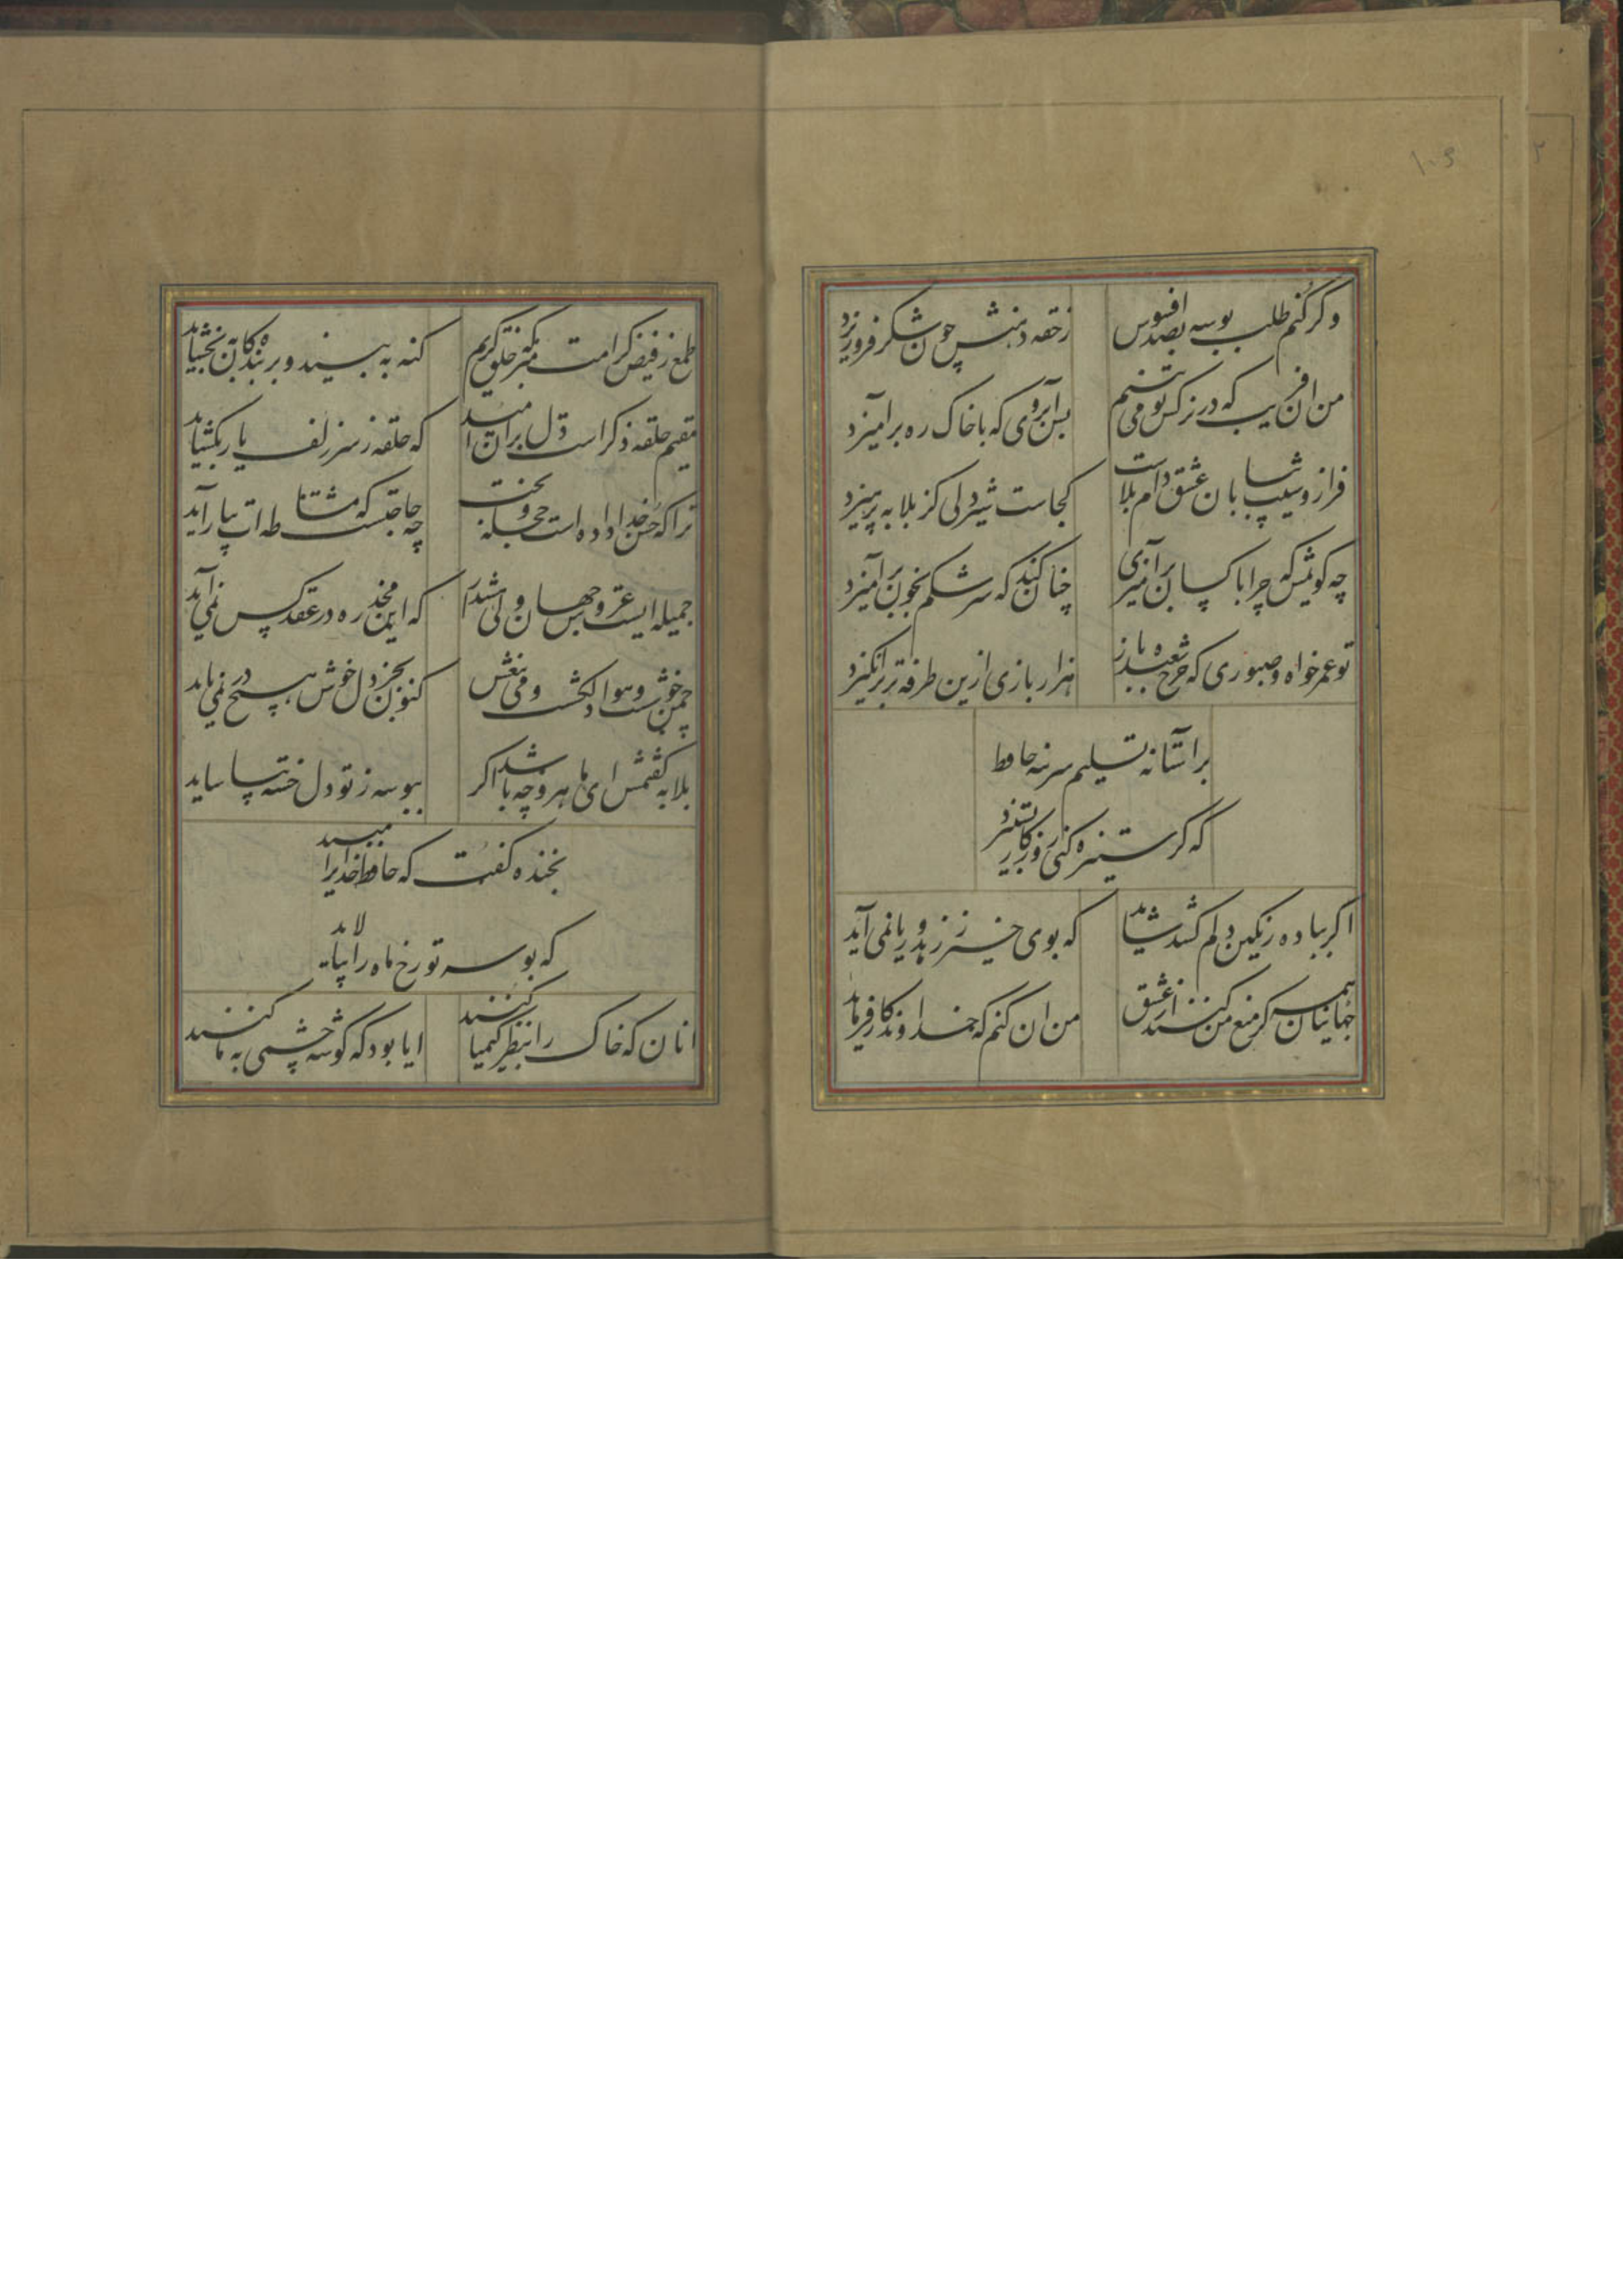 ۱۰۶
۲
وگر کنم طلب بوسه بصد افسوس
ز حقه دهنش چون شکر فرو ریزد
من آن فریب که در نرکس تو می بینم
بس آبروی که با خاک ره برآمیزد
فراز و شیب بیابان عشق دام بلاست
کجاست شیردلی کز بلا به پرهیزد
چه کویمش که چرا با کسان برآمیزی
چنان کند که سرشکم بخون برآمیزد
تو عمر خواه و صبوری که چرخ شعبده باز
هزار بازی ازین طرفه تر برانکیزد
بر آستانه تسلیم سر بنه حافظ
که کر ستیزه کنی روزکار بستیزد
اکر بباده رنکین دلم کشد شاید
که بوی خیر ز زهد و ریا نمی آید
جهانیان همه کر منع من کنند از عشق
من ان کنم که خداوندکار فرماید
طمع ز فیض کرامت مبر که خلق کریم
کنه به بیند و بر بندکان به بخشاید
مقیم حلقه ذکر است دل بران امید
که حلقه ز سر زلف یار بکشاید
ترا که حسن خداداده است و حجله بخت
چه حاجتست که مشاطه ات بیاراید
جمیله ایست عروس جهان ولی هشدار
که این مخدره در عقد کس نمی آید
چمن خوشست و هوا دلکشست و می بیغش
کنون بجز دل خوش هیچ در نمی باید
بلابه کفتمش ای ماهرو چه باشد اکر
ببوسه ز تو دل خسته بیاساید
بخنده کفت که حافظ خدایرا مپسند
که بوسه تو رخ ماه را بیالاید
انان که خاک را بنظر کیمیا کنند
ایا بود که کوشه چشمی به ما کنند